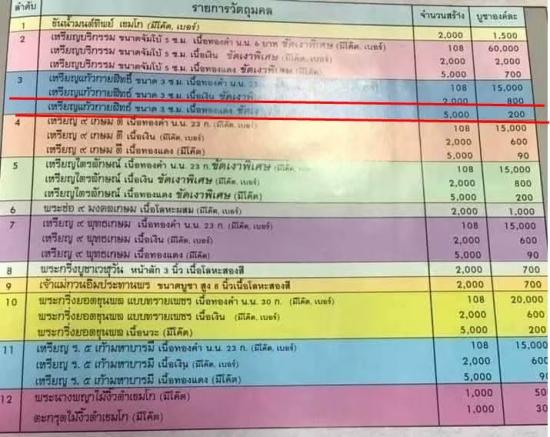 ลำดับ รายการวัตถุมคล จำนวนสร้าง บูชาองค์ละ
1 ขันน้ำมนต์ทิพย์ เขมโก (มีโค๊ด, เบอร์) 2,000 1,500
2 เหรียญบริกรรม ขนาดจัมโบ้ 5 ซ.ม. เนื้อทองคำ น.น. 6 บาท ขัดเงาพิเศษ (มีโค๊ต, เบอร์) 108 60,000
เหรียญบริกรรม ขนาดจัมโบ้ 5 ซ.ม. เนื้อเงิน ขัดเงาพิเศษ (มีโค๊ต, เบอร์) 2,000 2,000
เหรียญบริกรรม ขนาดจัมโบ้ 5 ซ.ม. เนื้อทองแดง ขัดเงาพิเศษ 5,000 700
3 เหรียญแก้วกายสิทธิ์ ขนาด 3 ซ.ม. เนื้อทองคำ น.น. 23 ก. 108 15,000
เหรียญแก้วกายสิทธิ์ ขนาด 3 ซ.ม. เนื้อเงิน ขัดเงา 2,000 800
เหรียญแก้วกายสิทธ ขนาด 3 ซ.ม. เนื้อทองแดง ขัดเงา 5,000 200
4 เหรียญ ๙ เกษม ดี เนื้อทองคำ น.น. 23 ก. (มีโค๊ด, เบอร์) 108 15,000
เหรียญ ๙ เกษม ดี เนื้อเงิน (มีโค๊ด, เบอร์) 2,000 600
เหรียญ ๙ เกษม ดี เนื้อทองแดง (มีโค๊ด) 5,000 90
5 เหรียญไตรลักษณ์ เนื้อทองคำ น.น. 23 ก. ขัดเงาพิเศษ (มีโค๊ด, เบอร์) 108 15,000
เหรียญไตรลักษณ์ เนื้อเงิน ขัดเงาพิเศษ (มีโค๊ด, เบอร์) 2,000 800
เหรียญไตรลักษณ์ เนื้อทองแดง ขัดเงาพิเศษ (มีโค๊ด) 5,000 200
6 พระช่อ ๙ มงคลเกษม เนื้อโลหะผสม (มีโค๊ด) 2,000 1,000
7 เหรียญ ๙ พุทธเกษม เนื้อทองคำ น.น. 23 ก. (มีโค๊ด, เบอร์) 108 15,000
เหรียญ ๙ พุทธเกษม เนื้อเงิน (มีโค๊ด, เบอร์) 2,000 600
เหรียญ ๙ พุทธเกษม เนื้อทองแดง (มีโค๊ด) 5,000 90
8 พระกริ่งบูชาเวฬุวัน หน้าตัก 3 นิ้ว เนื้อโลหะสองสี 2,000 700
9 เจ้าแม่กวนอิมประทานพร ขนาดบูชา สูง 6 นิ้วเนื้อโลหะสองสี 2,000 700
10 พระกริ่งยอดขุนพล แบบทรายเพชร เนื้อทองคำ น.น. 30 ก. (มีโค๊ด, เบอร์) 108 20,000
พระกริ่งยอดขุนพล แบบทรายเพชร เนื้อเงิน (มีโค๊ด, เบอร์) 2,000 600
พระกริ่งยอดขุนพล เนื้อนวะ (มีโค๊ด) 5,000 200
11 เหรียญ ร. ๕ เก้ามหาบารมี เนื้อทองคำ น.น. 23 ก. (มีโค๊ด, เบอร์) 108 15,000
เหรียญ ร. ๕ เก้ามหาบารมี เนื้อเงิน (มีโค๊ด, เบอร์) 2,000 600
เหรียญ ร. ๕ เก้ามหาบารมี เนื้อทองแดง (มีโค๊ต) 5,000 90
12 พระนางพญาไม้งิ้วดำเขมโก (มีโค๊ต) 1,000 50
ตะกรุดไม้งิ้วดำเขมโก (มีโค๊ต) 1,000 30